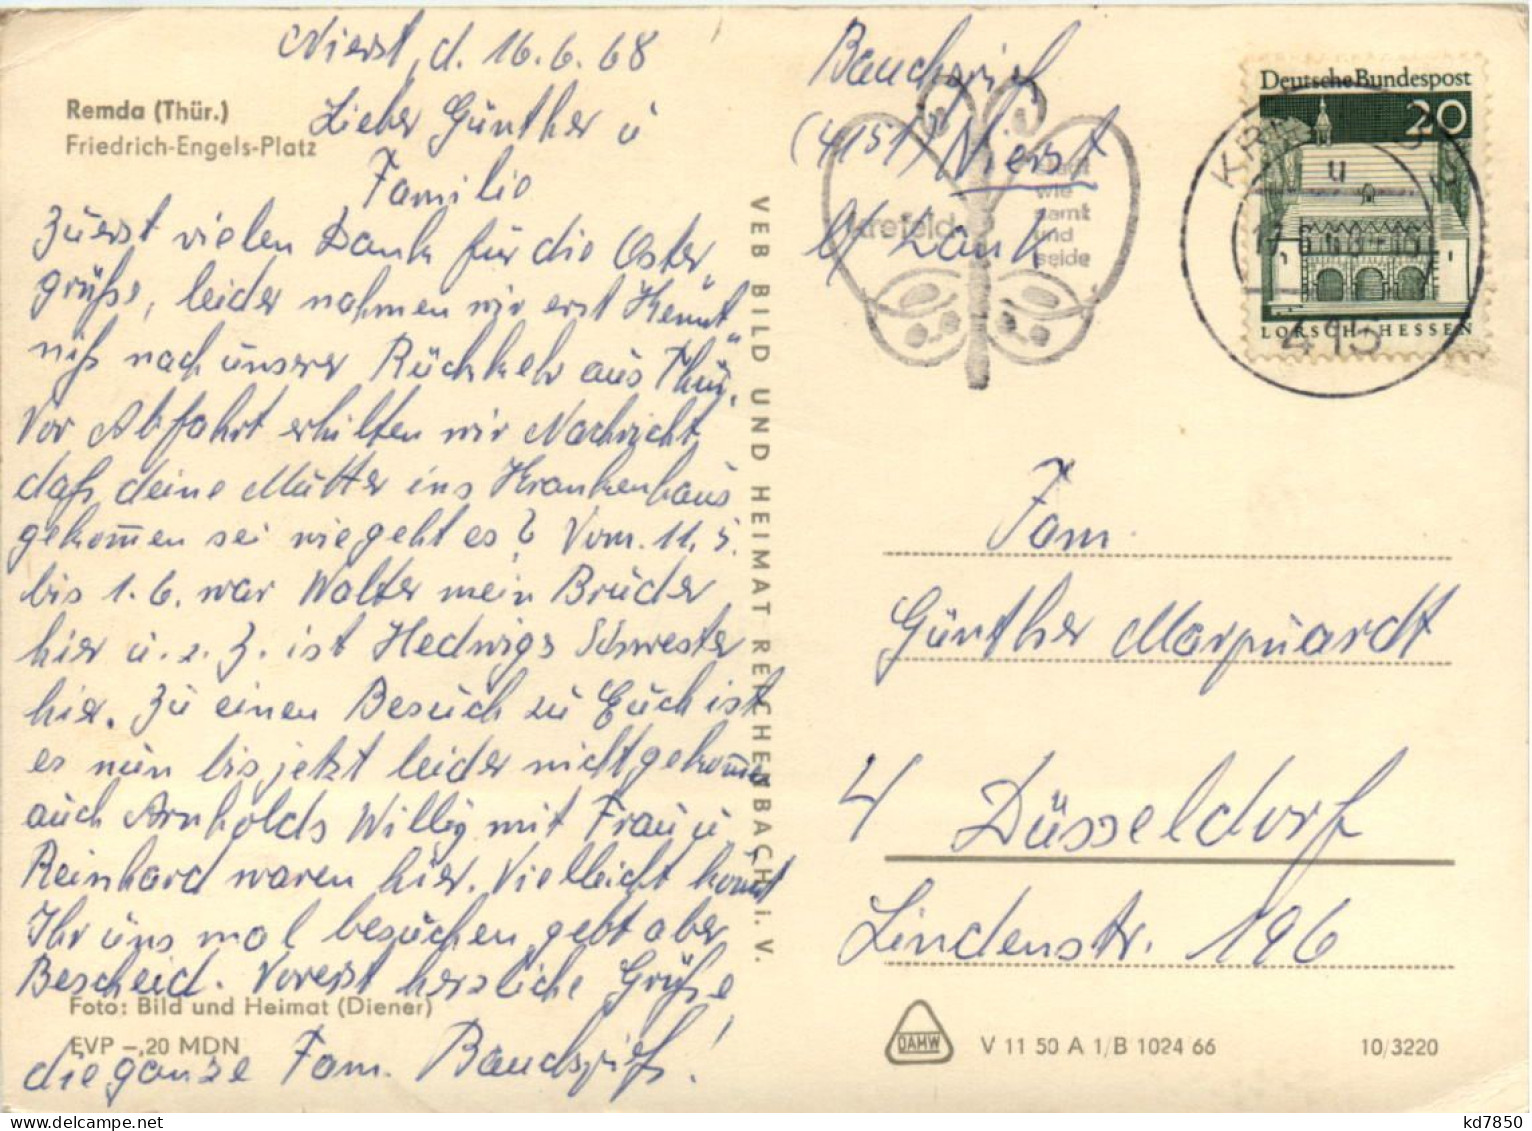 Nierst, d. 16.6.68
Remda (Thür.)
Friedrich-Engels-Platz
Lieber Günther u
Familie
Zuerst vielen Dank für die Oster„
grüße, leider nahmen wir erst Kennt„
niß nach unserer Rückkehr aus Thür.
Vor Abfahrt erhilten wir Nachricht,
daß deine Mutter ins Krankenhaus
gekom̅en sei wie geht es? Vom. 11. 5.
bis 1. 6. war Walter mein Bruder
hier u. z. Z. ist Hedwigs Schwester
hier. Zu einen Besuch zu Euch ist
es nun bis jetzt leider nicht gekom̅en
auch Arnholds Willig mit Frau u
Reinhard waren hier. Vielleicht kommt
Ihr uns mal besuchen, gebt aber
Bescheid. Vorerst herzliche Grüße
die ganze Fam. Bauchspieß!
Foto: Bild und Heimat (Diener)
EVP –,20 MDN
VEB BILD UND HEIMAT REICHENBACH i. V.
Bauchspieß
(4151) Nierst
ü/ Lank
Krefeld
wie
samt
und
seide
Deutsche Bundespost
20
LORSCH/HESSEN
415
Fam.
Günther Marquardt
4 Düsseldorf
Lindenstr. 196
DAMW
V 11 50 A 1/B 1024 66
10/3220
kd7850